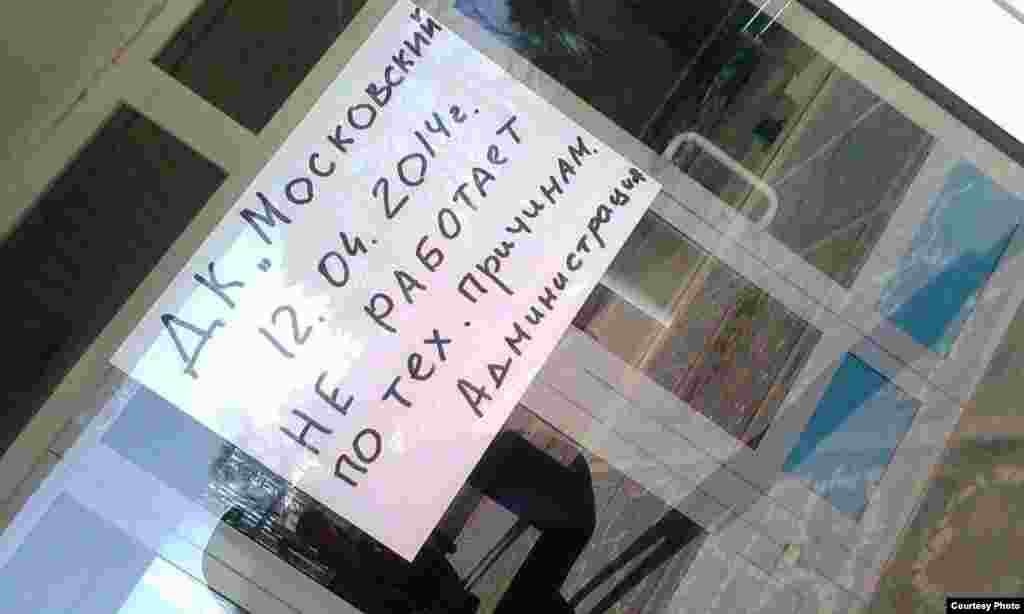 Д.К. „Московский
12. 04. 2014г.
НЕ РАБОТАЕТ
ПО тех. причинам.
Администрация
Courtesy Photo